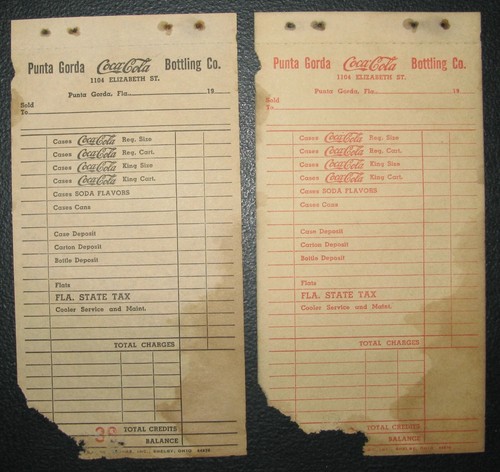 Punta Gorda Coca-Cola Bottling Co.
1104 ELIZABETH ST.
Punta Gorda, Fla. 19
Sold
To
Cases Coca-Cola Reg. Size
Cases Coca-Cola Reg. Cart.
Cases Coca-Cola King Size
Cases Coca-Cola King Cart.
Cases SODA FLAVORS
Cases Cans
Case Deposit
Carton Deposit
Bottle Deposit
Flats
FLA. STATE TAX
Cooler Service and Maint.
TOTAL CHARGES
TOTAL CREDITS
BALANCE
INC., SHELBY, OHIO
Punta Gorda Coca-Cola Bottling Co.
1104 ELIZABETH ST.
Punta Gorda, Fla. 19
Sold
To
Cases Coca-Cola Reg. Size
Cases Coca-Cola Reg. Cart.
Cases Coca-Cola King Size
Cases Coca-Cola King Cart.
Cases SODA FLAVORS
Cases Cans
Case Deposit
Carton Deposit
Bottle Deposit
Flats
FLA. STATE TAX
Cooler Service and Maint.
TOTAL CHARGES
TOTAL CREDITS
BALANCE